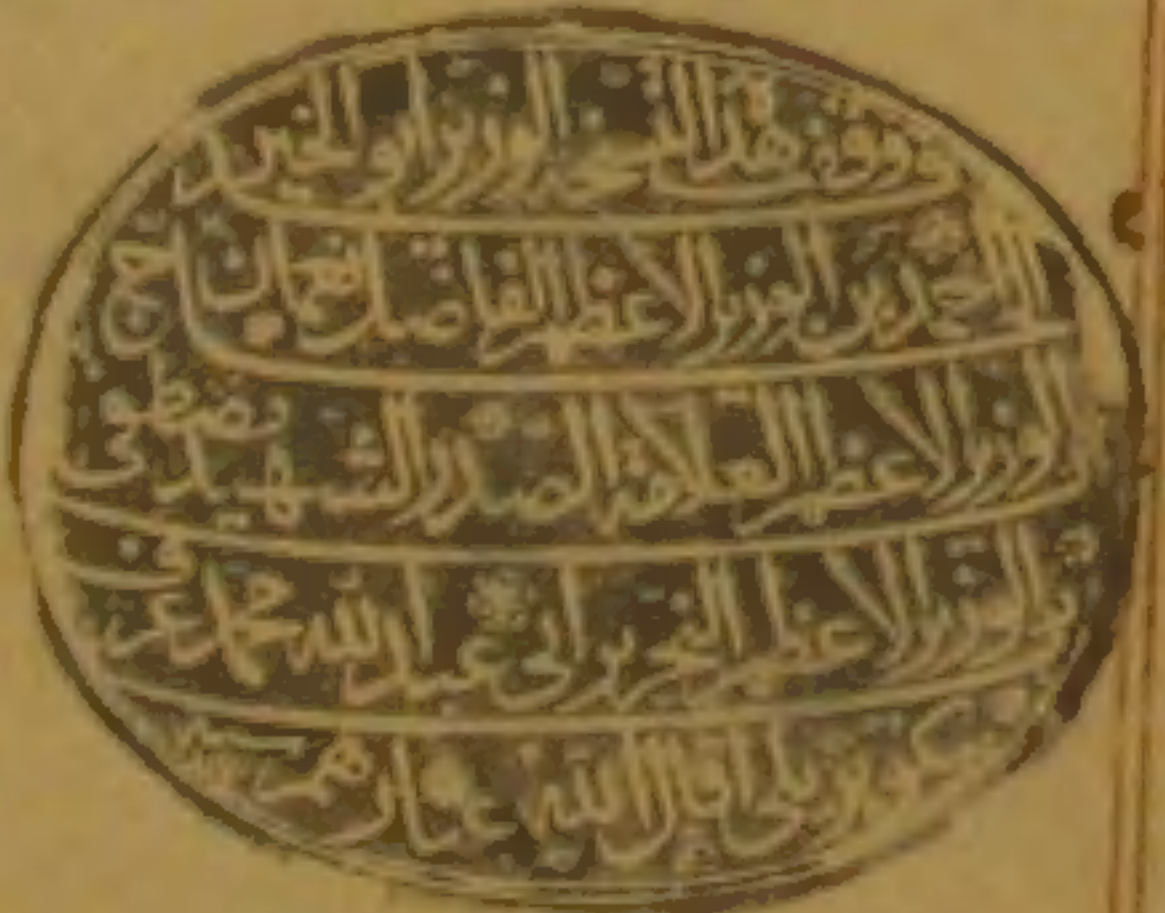 وقف هذا النسخه الوزير ابو الخير الحاج
احمد بن الوزير الاعظم الفاضل نعمان بن
الوزير الاعظم العلامة الصدر الشهيد مصطفى
بن الوزير الاعظم النحرير ابى عبد الله محمد عرف
بكوپريلى اقال الله عثارهم